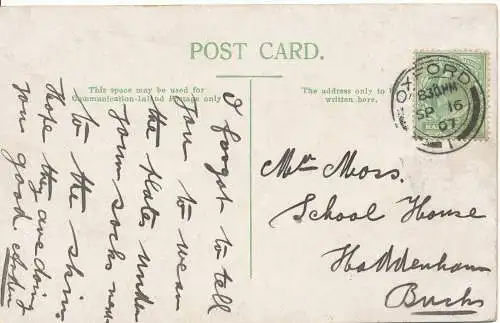 POST CARD.
This space may be used for
Communication-Inland Postage only
The address only to be
written here.
OXFORD
8.30PM
SP 16
07
I forgot to tell
you to wear
the plates under
your socks next
to the skin
Hope they are doing
you good
Mr Moss.
School House
Haddenham
Bucks